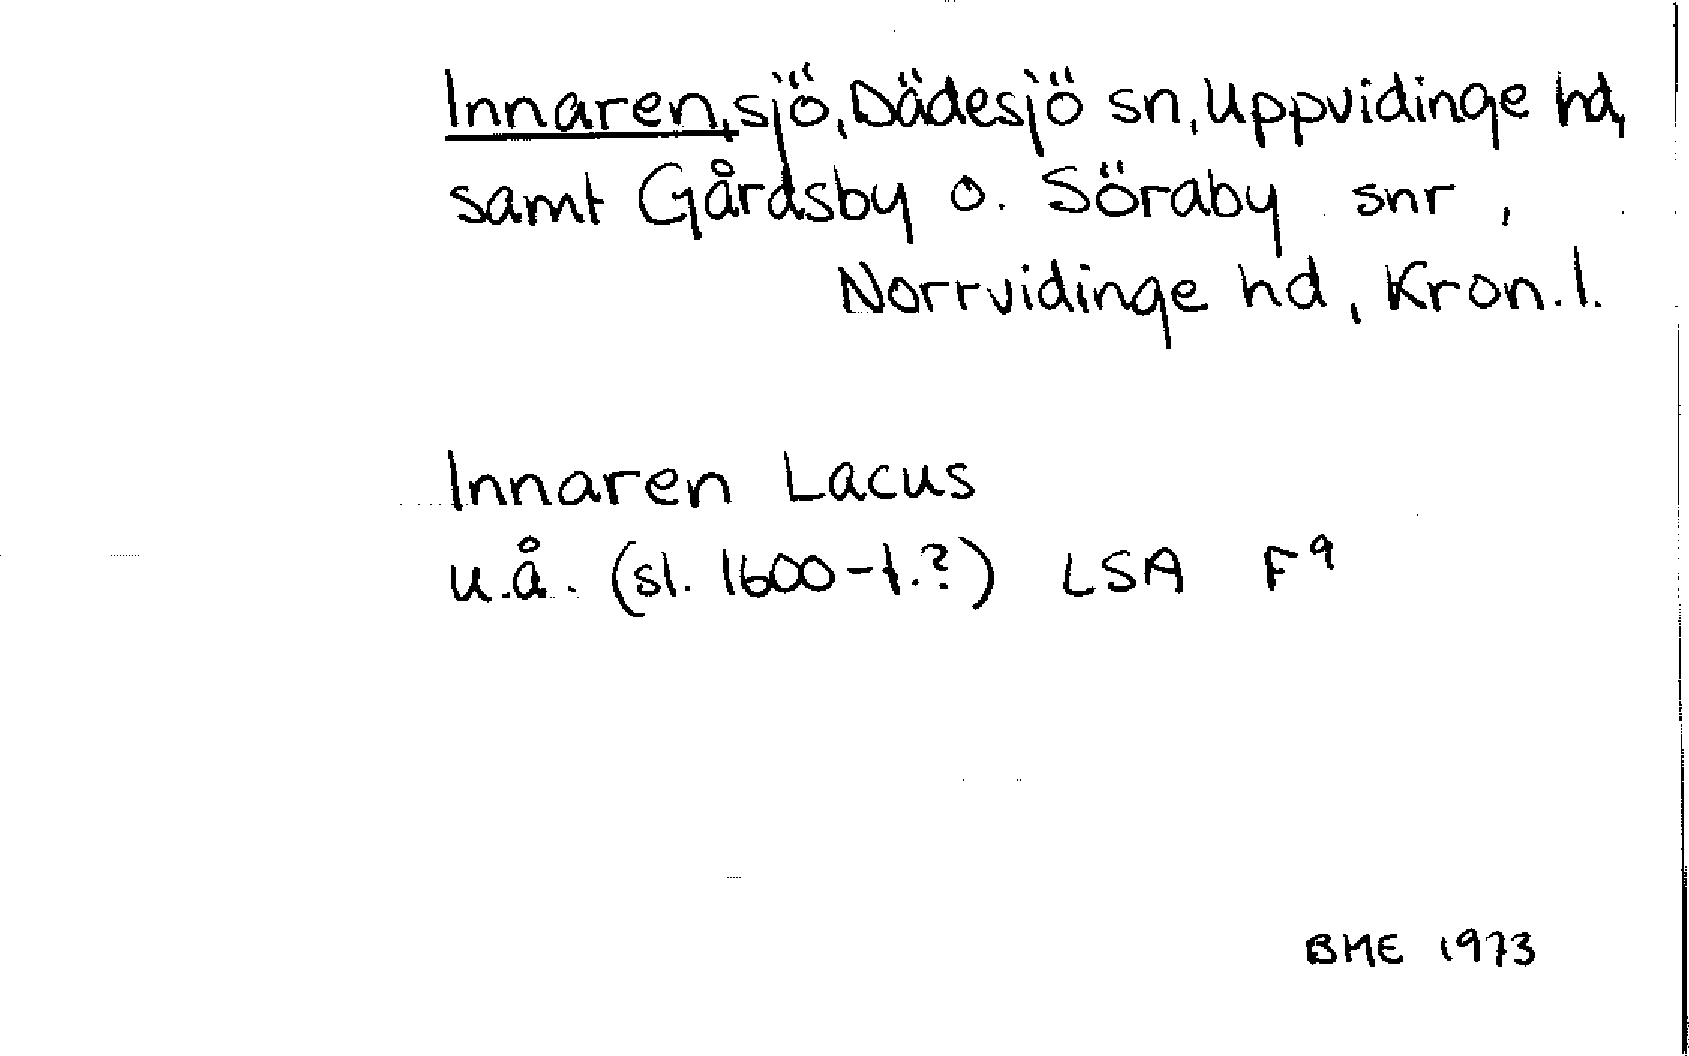 Innaren, sjö, Dädesjö sn, Uppvidinge hd,
samt Gårdsby o. Söraby snr,
Norrvidinge hd, Kron. l.
Innaren Lacus
u.å. (sl. 1600-t.?) LSA F⁹
BME 1973